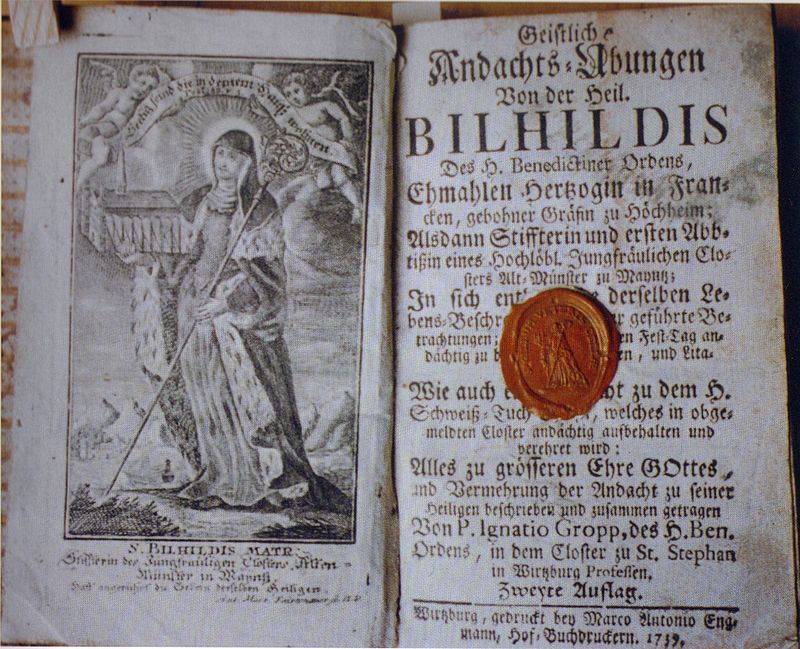 Seelig seind die in deinem Hauß wohnen.
S. BILHILDIS MATR.
Stiffterin des Jungfräuligen Closters Alten-
Münster in Mayntz,
Hat angerührt die Gebein derselben Heiligen.
Geistliche
Andachts-Ubungen
Von der Heil.
BILHILDIS
Des H. Benedictiner Ordens,
Ehmahlen Hertzogin in Fran-
cken, gebohner Gräfin zu Höchheim;
Alsdann Stiffterin und ersten Abb-
tißin eines Hochlöbl. Jungfräulichen Clo-
sters Alt-Münster zu Mayntz;
In sich derselben Le-
geführte Be-
trachtungen; Fest-Tag an-
dächtig zu und Lita-
Wie auch zu dem H.
Schweiß-Tuch welches in obge-
meldten Closter andächtig aufbehalten und
verehret wird:
Alles zu grösseren Ehre GOttes,
und Vermehrung der Andacht zu seiner
Heiligen beschrieben und zusammen getragen
Von P. Ignatio Gropp, des H. Ben.
Ordens, in dem Closter zu St. Stephan
in Wirtzburg Professen,
Zweyte Auflag.
Wirtzburg, gedruckt bey Marco Antonio Eng-
mann, Hof-Buchdruckern. 1739.